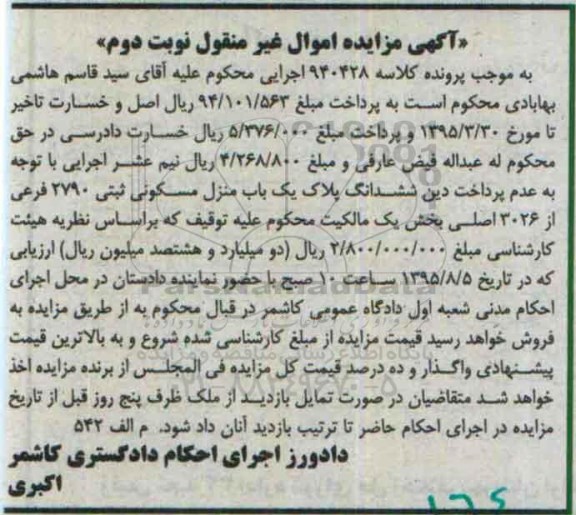 «آگهی مزایده اموال غیر منقول نوبت دوم»
به موجب پرونده کلاسه ۹۴۰۴۲۸ اجرایی محکوم علیه آقای سید قاسم هاشمی
بهابادی محکوم است به پرداخت مبلغ ۹۴/۱۰۱/۵۶۳ ریال اصل و خسارت تاخیر
تا مورخ ۱۳۹۵/۳/۳۰ و پرداخت مبلغ ۵/۳۷۶/۰۰۰ ریال خسارت دادرسی در حق
محکوم له عبداله فیض عارفی و مبلغ ۴/۲۶۸/۸۰۰ ریال نیم عشر اجرایی با توجه
به عدم پرداخت دین ششدانگ پلاک یک باب منزل مسکونی ثبتی ۲۷۹۰ فرعی
از ۳۰۲۶ اصلی بخش یک مالکیت محکوم علیه توقیف که براساس نظریه هیئت
کارشناسی مبلغ ۲/۸۰۰/۰۰۰/۰۰۰ ریال (دو میلیارد و هشتصد میلیون ریال) ارزیابی
که در تاریخ ۱۳۹۵/۸/۵ ساعت ۱۰ صبح با حضور نماینده دادستان در محل اجرای
احکام مدنی شعبه اول دادگاه عمومی کاشمر در قبال محکوم به از طریق مزایده به
فروش خواهد رسید قیمت مزایده از مبلغ کارشناسی شده شروع و به بالاترین قیمت
پیشنهادی واگذار و ده درصد قیمت کل مزایده فی المجلس از برنده مزایده اخذ
خواهد شد متقاضیان در صورت تمایل بازدید از ملک ظرف پنج روز قبل از تاریخ
مزایده در اجرای احکام حاضر تا ترتیب بازدید آنان داد شود. م الف ۵۴۲
دادورز اجرای احکام دادگستری کاشمر
اکبری